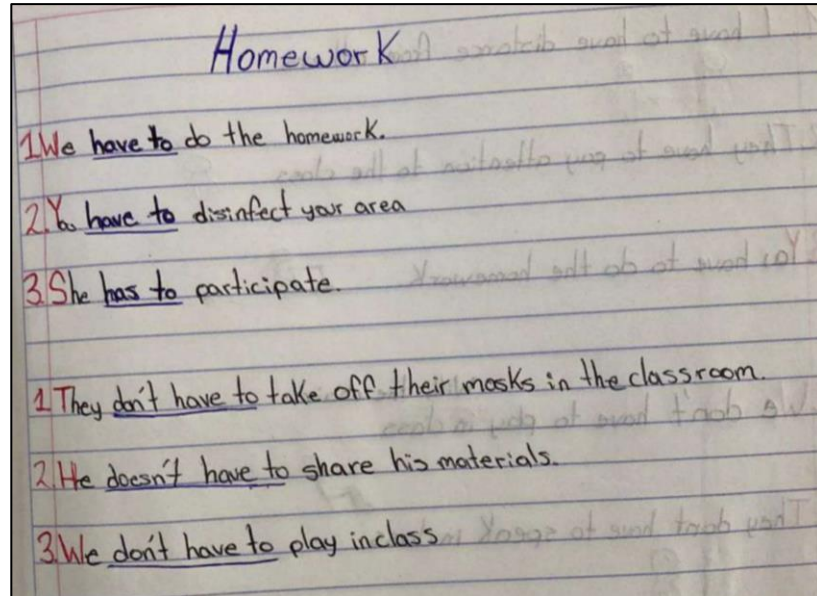 Homework
1. We have to do the homework.
2. You have to disinfect your area
3. She has to participate.
1 They don't have to take off their masks in the classroom.
2. He doesn't have to share his materials.
3. We don't have to play in class